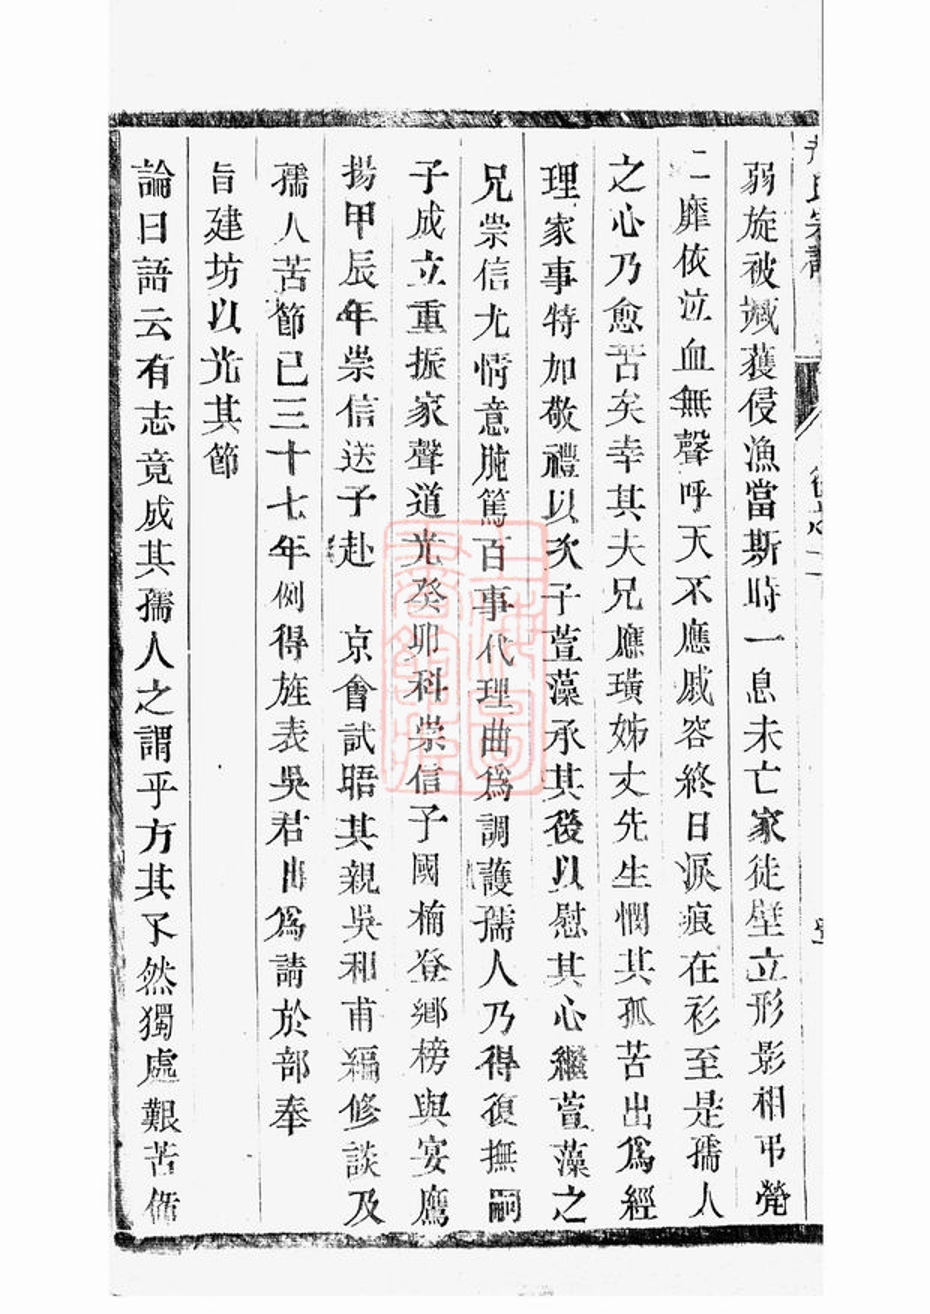 弱旋被臧蒦侵漁當斯時一息未亡家徒壁立形影相弔煢
二靡依泣血無聲呼天不應戚容終日淚痕在衫至是孺人
之心乃愈苦矣幸其夫兄應璜姊丈先生憫其孤苦出爲經
理家事特加敬禮以次子萱藻承其後以慰其心繼萱藻之
兄崇信尤情意肫篤百事代理曲爲調護孺人乃得復撫嗣
子成立重振家聲道光癸卯科崇信子國楠登鄉榜與宴鷹
揚甲辰年崇信送子赴　京會試晤其親吳和甫編修談及
孺人苦節已三十七年例得旌表吳君出爲請於部奉
旨建坊以光其節
論曰語云有志竟成其孺人之謂乎方其不然獨處艱苦備
上海圖書館藏